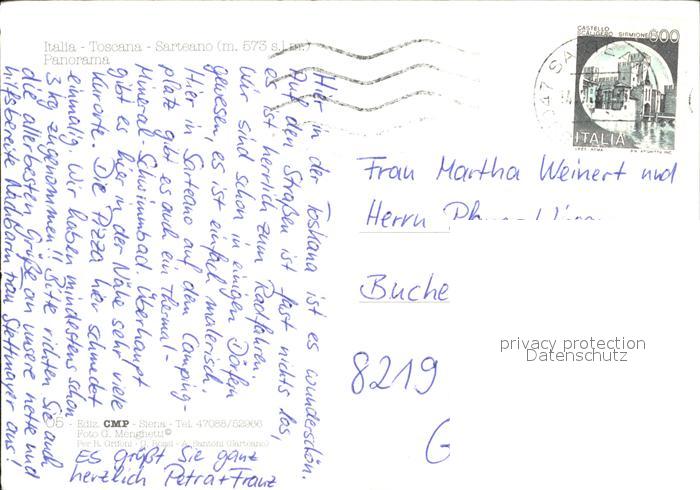 Italia - Toscana - Sarteano (m. 573 s.l.m.)
Panorama
Hier in der Toskana ist es wunderschön.
Auf den Straßen ist fast nichts los,
es ist herrlich zum Radfahren.
Wir sind schon in einigen Dörfern
gewesen, es ist einfach malerisch.
Hier in Sarteano auf dem Camping-
platz gibt es auch ein Thermal-
Mineral-Schwimmbad. Überhaupt
gibt es hier in der Nähe sehr viele
Kurorte. Die Pizza hier schmeckt
einmalig. Wir haben mindestens schon
3 kg zugenommen!! Bitte richten Sie auch
die allerbesten Grüße an unsere nette und
hilfsbereite Nachbarin Frau Stettmeyer aus!
Es grüßt Sie ganz
herzlich Petra + Franz
05 - Ediz. CMP - Siena - Tel. 47088/52966
Foto G. Menghetti ©
Per R. Grifoni - G. Rossi - A. Santoni (Sarteano)
CASTELLO
SCALIGERO SIRMIONE 600
ITALIA
Frau Martha Weinert und
Herrn
Buche
8219
G
privacy protection
Datenschutz